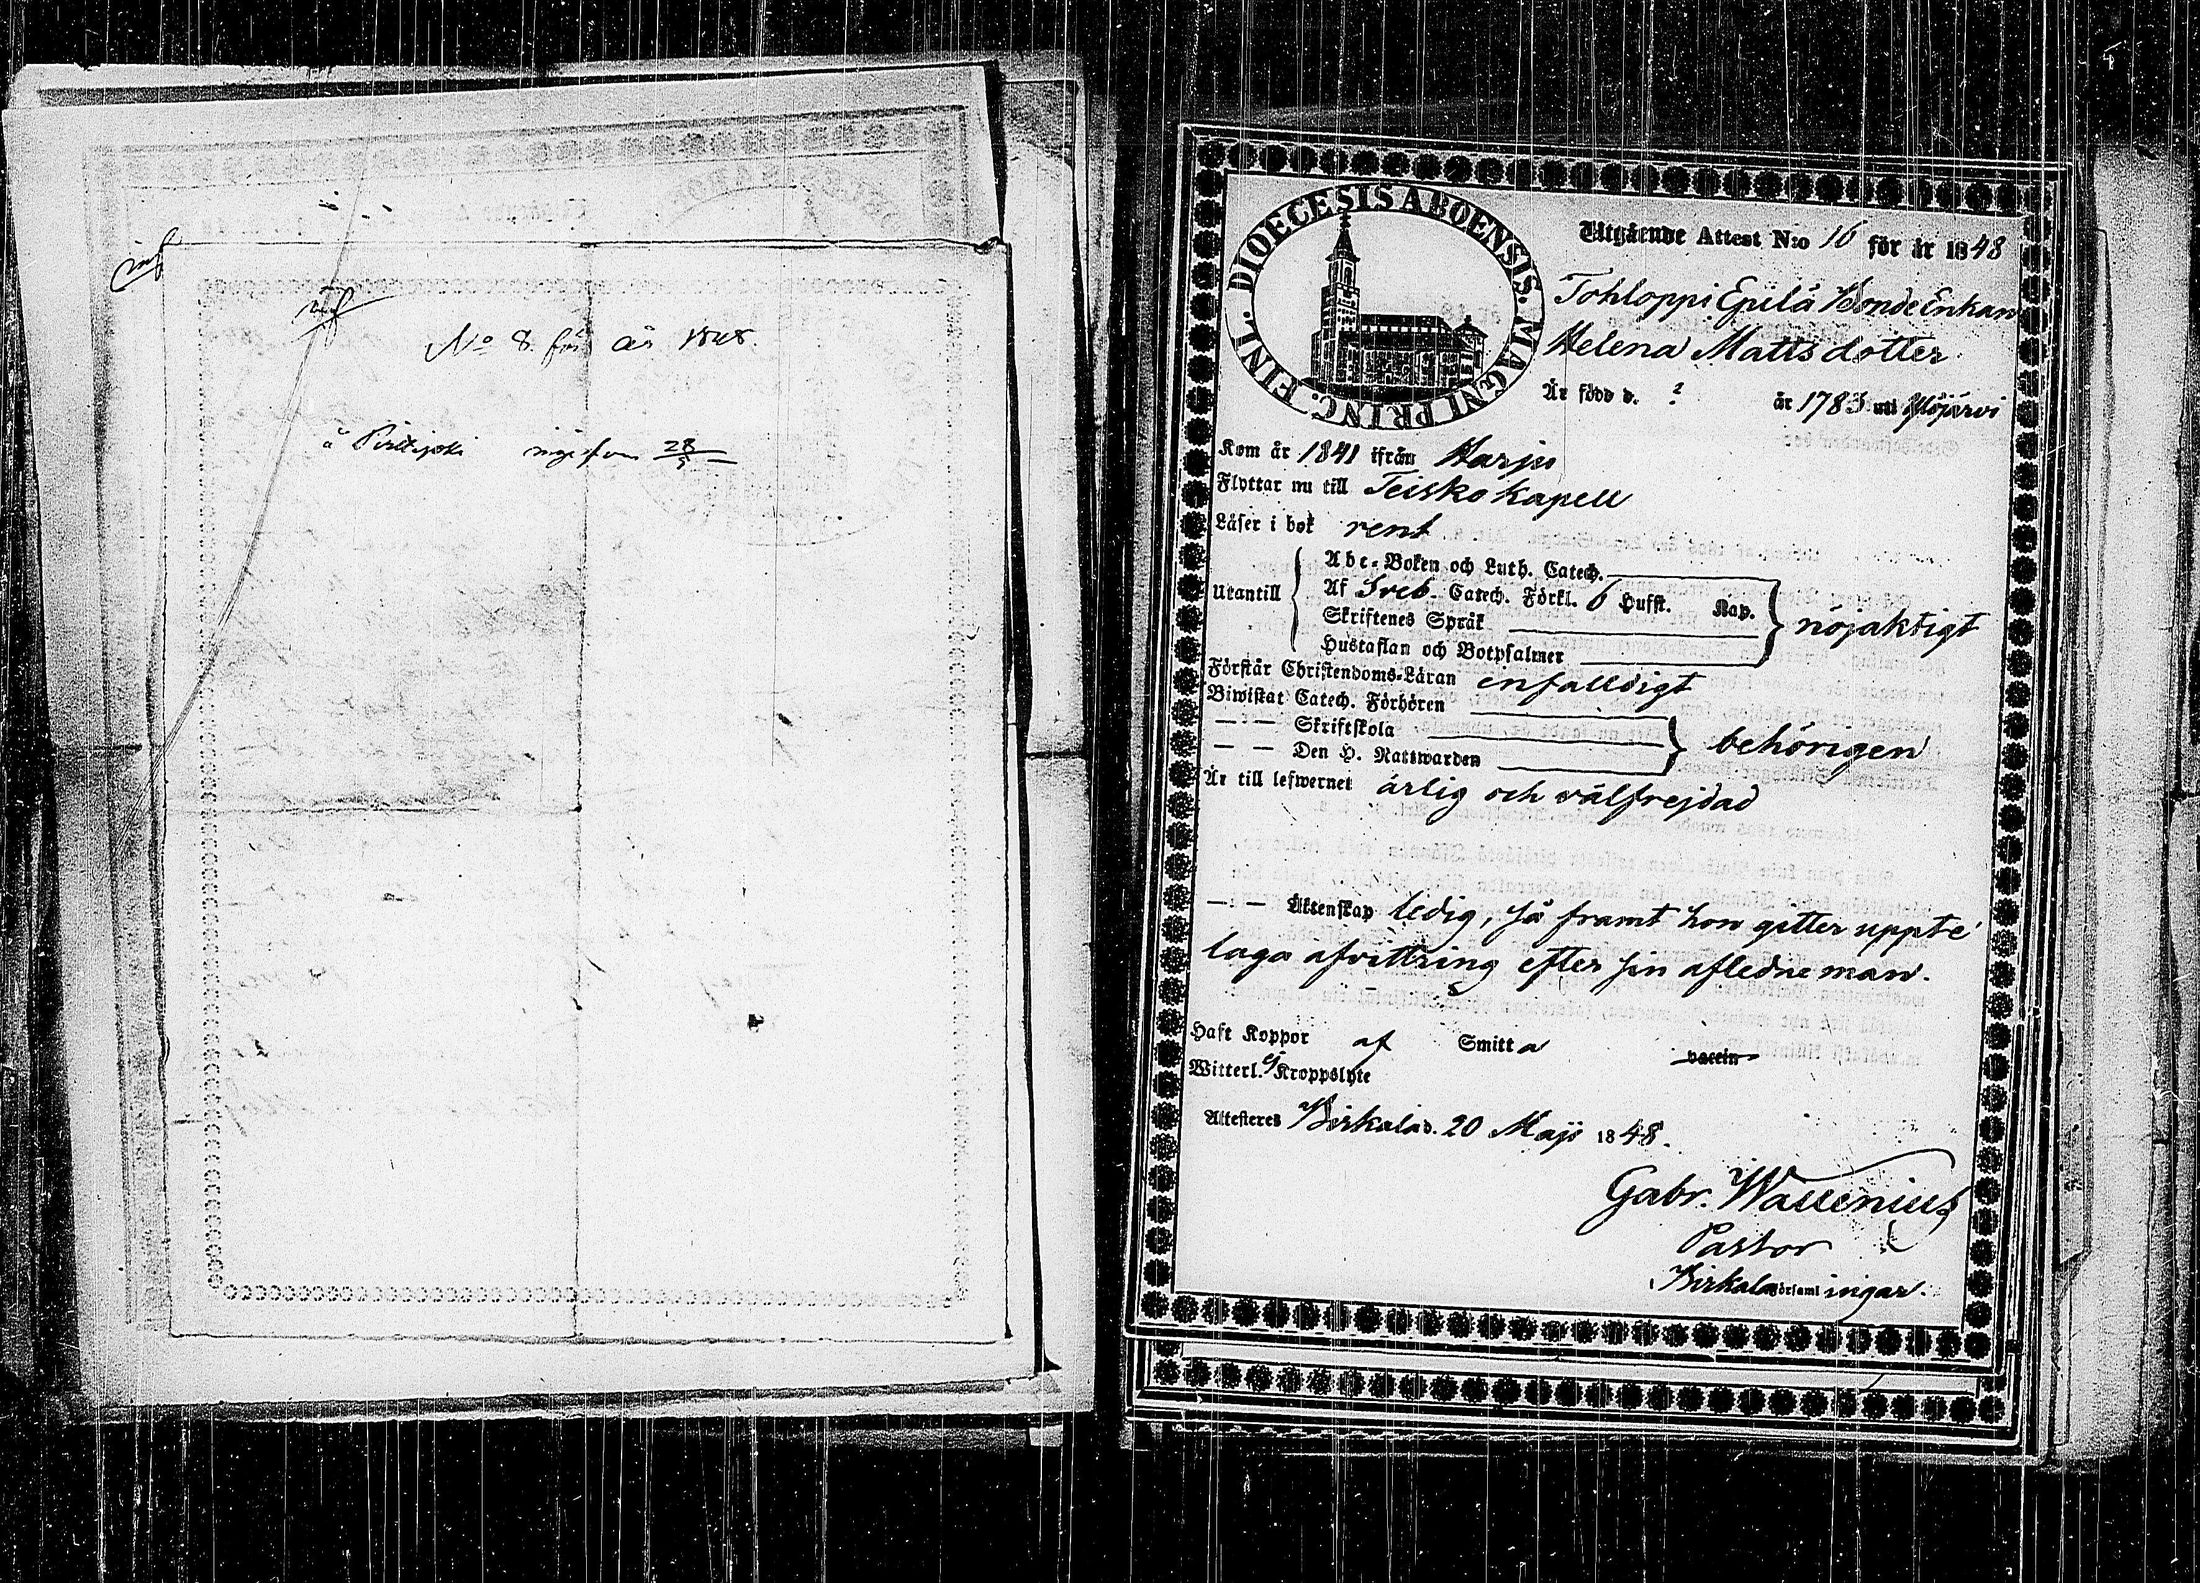 inf
No 8. för år 1848.
å Pirttijoki
DIOECESIS ABOENSIS. MAGNI PRINC. FINL.
Utgående Attest N:o 16 för år 1848
Tohloppi Epilä Bonde Enkan
Helena Matts dotter
Är född d. ? år 1783 uti Ylöjärvi
Kom år 1841 ifrån Harju
Flyttar nu till Teisko Kapell
Läser i bok rent
Utantill
Abc-Boken och Luth. Catech.
Af Sveb. Catech. Förkl. 6 Hufst. Kap.
Skriftenes Språk
Hustaflan och Botpsalmer
nöjaktigt
Förstår Christendoms-Läran enfalldigt
Biwistat Catech. Förhören
— : — Skriftskola
— — Den H. Nattwarden
behörigen
Är till lefwernet ärlig och välfrejdad
— : — Äktenskap ledig, så framt hon gitter uppte
laga afvittring efter sin aflednе man.
Haft Koppor af Smitta vaccin
Witterl. ej Kroppslyte
Attesteres Birkala d. 20 Maji 1848.
Gabr. Wallenius
Pastor
Birkala församlingar.